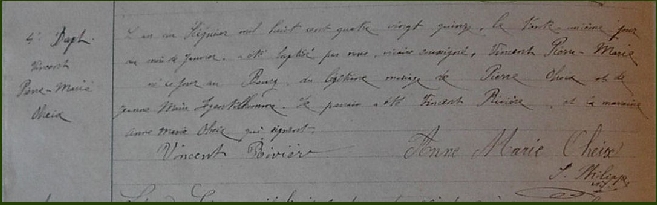 4e Bapt.
Vincent
Pierre-Marie
Cheix
L'an mil huit cent quatre vingt quinze, le trente unième jour
du mois de janvier, a été baptisé par nous, vicaire soussigné, Vincent Pierre-Marie
né ce jour au Bourg, du légitime mariage de Pierre Cheix et de
Jeanne Marie. Le parrain a été Vincent Rivière, et la marraine
Anne Marie Cheix qui signent.
Vincent Rivière Anne Marie Cheix
S. Philippe